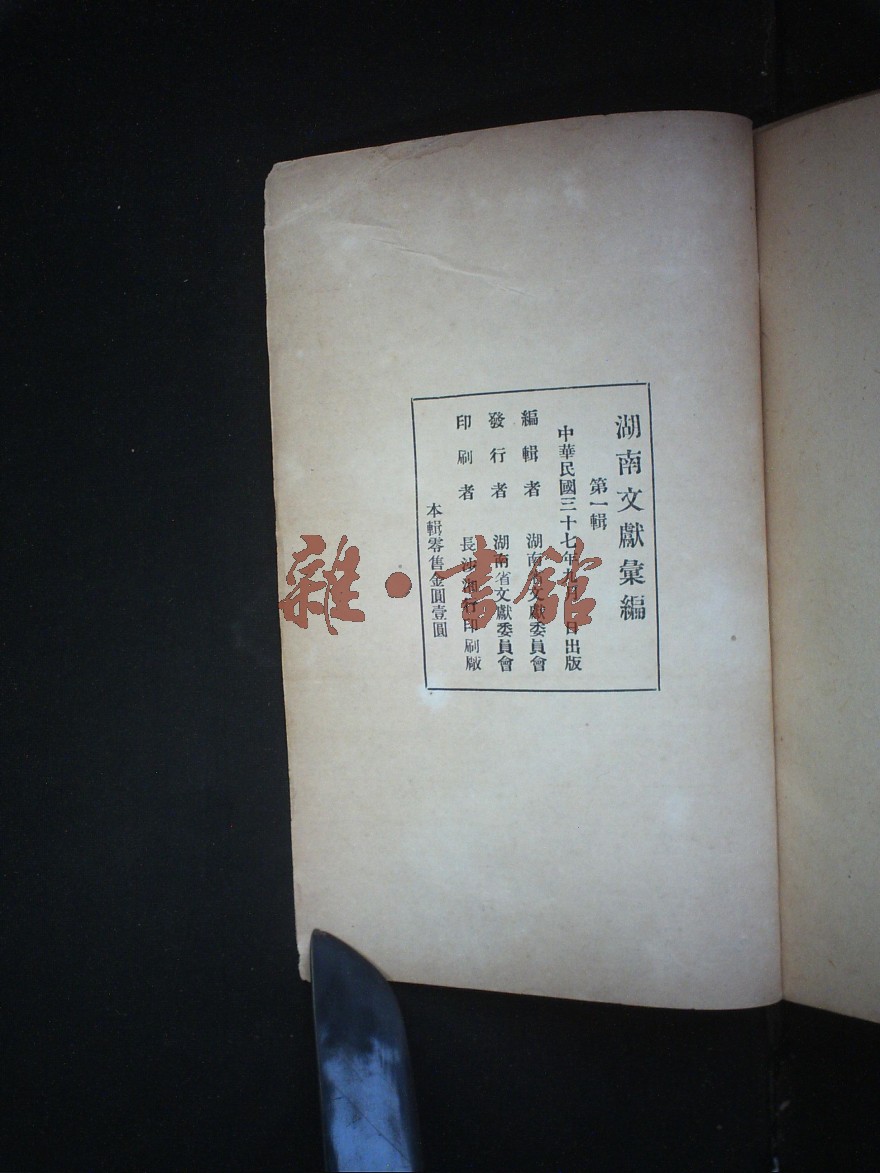 湖南文獻彙編
第一輯
中華民國三十七年九月一日出版
編輯者 湖南省文獻委員會
發行者 湖南省文獻委員會
印刷者 長沙湘行印刷廠
本輯零售金圓壹圓
雜·書館